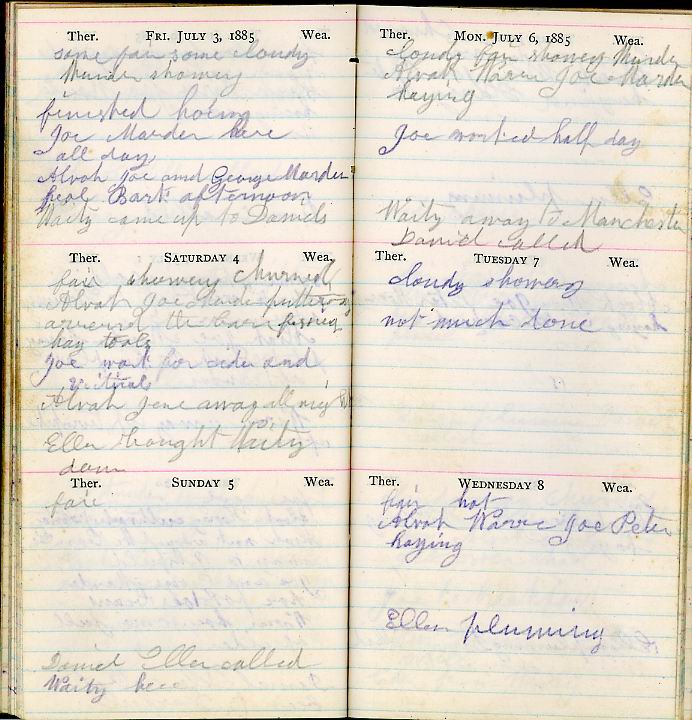 Ther. FRI. JULY 3, 1885 Wea.
some fair some cloudy
thunder showery
finished hoeing
Joe Marder here
all day
Alvah Joe and George Marder
peal Bark afternoon
Waity came up to Daniels
Ther. SATURDAY 4 Wea.
fair showery churned
Alvah Joe
around the barn
hay tools
Joe work for cider and
vitials
Alvah gone away all nig
Ellen thought Waity
down
Ther. SUNDAY 5 Wea.
fair
Daniel Ellen called
Waity here
Ther. MON. JULY 6, 1885 Wea.
cloudy fair showery thunder
Alvah Warre Joe Marder
haying
Joe worked half day
Waity away to Manchester
Daniel called
Ther. TUESDAY 7 Wea.
cloudy showery
not much done
Ther. WEDNESDAY 8 Wea.
fair hot
Alvah Warre Joe Peter
haying
Ellen pluming